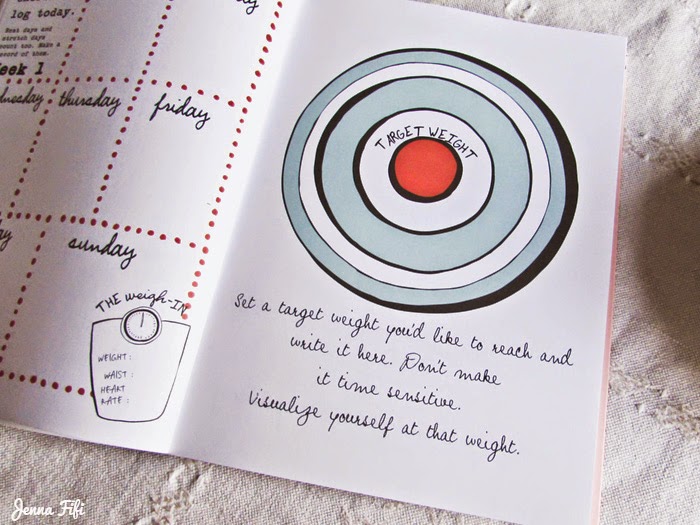 log today.
Rest days and
stretch days
count too. Make a
record of them.
Week 1
wednesday
thursday
friday
sunday
THE weigh-IN
WEIGHT:
WAIST:
HEART
RATE:
TARGET WEIGHT
Set a target weight you'd like to reach and
write it here. Don't make
it time sensitive.
Visualize yourself at that weight.
Jenna Fifi